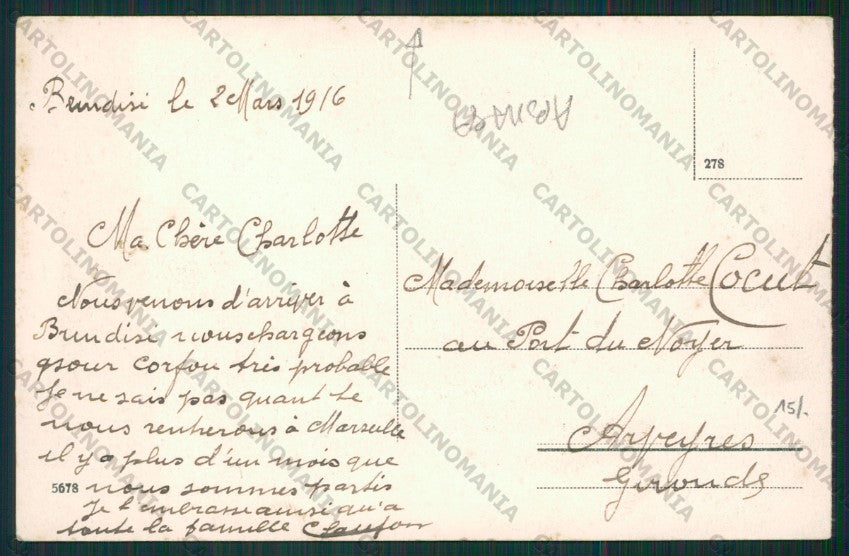 Brindisi le 2 Mars 1916
278
Ma Chère Charlotte
Nous venons d'arriver à
Brindisi nous chargeons
pour Corfou très probable
Je ne sais pas quant te
nous rentrerons à Marseille
il y a plus d'un mois que
5678 nous sommes partis
Je t'embrasse ainsi qu'a
toute la famille
Mademoiselle Charlotte Cocut
au Port du Noyer
15/-
Arveyres
Gironde
CARTOLINOMANIA